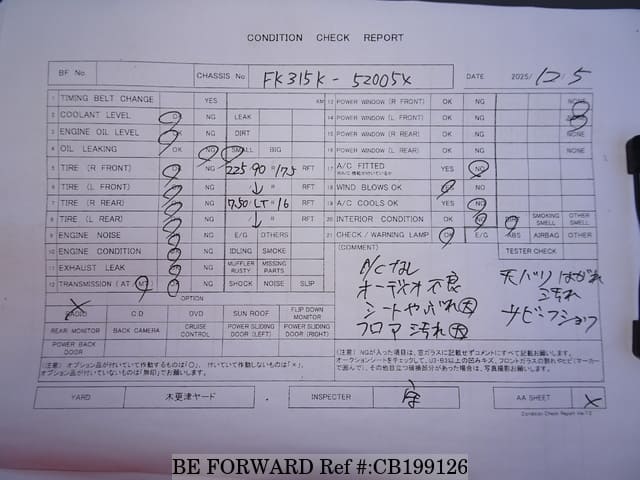 CONDITION CHECK REPORT
BF No. CHASSIS No FK315K - 52005X DATE 2025/12/5
1 TIMING BELT CHANGE YES KM 13 POWER WINDOW (R FRONT) OK NG NONE
2 COOLANT LEVEL OK NG LEAK 14 POWER WINDOW (L FRONT) OK NG NONE
3 ENGINE OIL LEVEL OK NG DIRT 15 POWER WINDOW (R REAR) OK NG NONE
4 OIL LEAKING OK NG SMALL BIG 16 POWER WINDOW (L REAR) OK NG NONE
5 TIRE (R FRONT) OK NG 225/90 R 17.5 RFT 17 A/C FITTED YES NO
6 TIRE (L FRONT) OK NG ↓ RFT 18 WIND BLOWS OK OK NG
7 TIRE (R REAR) OK NG 7.50/LT R 16 RFT 19 A/C COOLS OK YES NO
8 TIRE (L REAR) OK NG ↓ RFT 20 INTERIOR CONDITION OK NG SMOKING SMELL OTHER SMELL
9 ENGINE NOISE OK NG E/G OTHERS 21 CHECK/WARNING LAMP OK E/G ABS AIRBAG OTHERS
10 ENGINE CONDITION OK NG IDLING SMOKE (COMMENT) TESTER CHECK
11 EXHAUST LEAK OK NG MUFFLER RUSTY MISSING PARTS
12 TRANSMISSION (AT/MT) OK NG SHOCK NOISE SLIP
A/Cなし
オーディオ不良
シートやぶれ大
フロア汚れ大
天バリはがれ
汚れ
サビーフショウ
OPTION
RADIO CD DVD SUN ROOF FLIP DOWN MONITOR
REAR MONITOR BACK CAMERA CRUISE CONTROL POWER SLIDING DOOR (LEFT) POWER SLIDING DOOR (RIGHT)
POWER BACK DOOR
(注意) オプション品が付いていて作動するものは「○」, 付いていて作動しないものは「×」,
オプション品が付いていないものは「無印」でお願いします。
(注意) NGが入った項目は、空ガラスに記載せずコメントにすべて記載お願います。
YARD 木更津ヤード INSPECTER AA SHEET ×
Condition Check Report Ver.13
BE FORWARD Ref #:CB199126